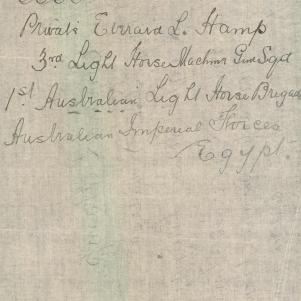 Private Everard L. Hamp
3rd Light Horse Machine Gun Sqd
1st Australian Light Horse Brigade
Australian Imperial Forces
Egypt.